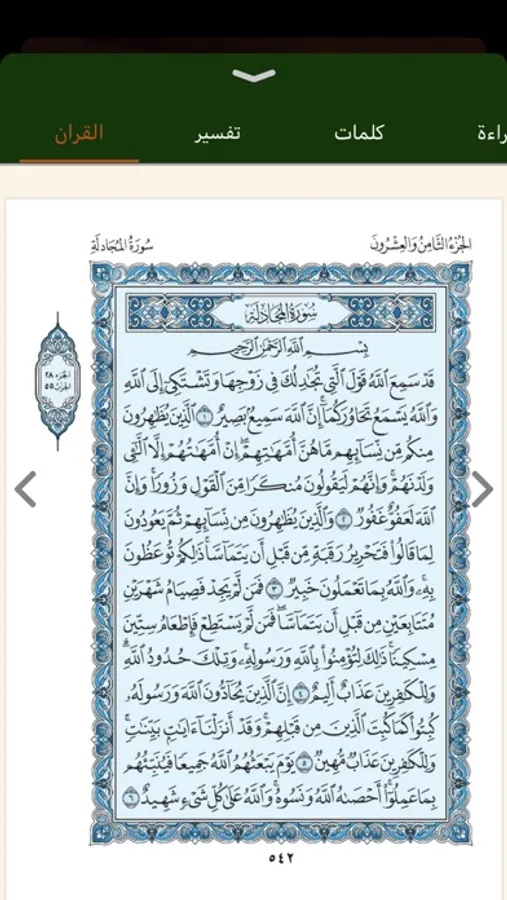 القران
تفسير
كلمات
راءة
الجُزْءُ الثَّامِنُ وَالعِشْرُونَ
سُورَةُ المُجَادلَةِ
سُورَةُ المُجَادلَةِ
بِسْمِ ٱللَّهِ ٱلرَّحْمَٰنِ ٱلرَّحِيمِ
قَدْ سَمِعَ ٱللَّهُ قَوْلَ ٱلَّتِي تُجَٰدِلُكَ فِي زَوْجِهَا وَتَشْتَكِيٓ إِلَى ٱللَّهِ
وَٱللَّهُ يَسْمَعُ تَحَاوُرَكُمَآۚ إِنَّ ٱللَّهَ سَمِيعُۢ بَصِيرٌ ١ ٱلَّذِينَ يُظَٰهِرُونَ
مِنكُم مِّن نِّسَآئِهِم مَّا هُنَّ أُمَّهَٰتِهِمْۖ إِنْ أُمَّهَٰتُهُمْ إِلَّا ٱلَّٰٓـِٔي
وَلَدْنَهُمْۚ وَإِنَّهُمْ لَيَقُولُونَ مُنكَرًا مِّنَ ٱلْقَوْلِ وَزُورًاۚ وَإِنَّ
ٱللَّهَ لَعَفُوٌّ غَفُورٌ ٢ وَٱلَّذِينَ يُظَٰهِرُونَ مِن نِّسَآئِهِمْ ثُمَّ يَعُودُونَ
لِمَا قَالُوا۟ فَتَحْرِيرُ رَقَبَةٍ مِّن قَبْلِ أَن يَتَمَآسَّاۚ ذَٰلِكُمْ تُوعَظُونَ
بِهِۦۚ وَٱللَّهُ بِمَا تَعْمَلُونَ خَبِيرٌ ٣ فَمَن لَّمْ يَجِدْ فَصِيَامُ شَهْرَيْنِ
مُتَتَابِعَيْنِ مِن قَبْلِ أَن يَتَمَآسَّاۖ فَمَن لَّمْ يَسْتَطِعْ فَإِطْعَامُ سِتِّينَ
مِسْكِينًاۚ ذَٰلِكَ لِتُؤْمِنُوا۟ بِٱللَّهِ وَرَسُولِهِۦۚ وَتِلْكَ حُدُودُ ٱللَّهِۗ
وَلِلْكَٰفِرِينَ عَذَابٌ أَلِيمٌ ٤ إِنَّ ٱلَّذِينَ يُحَآدُّونَ ٱللَّهَ وَرَسُولَهُۥ
كُبِتُوا۟ كَمَا كُبِتَ ٱلَّذِينَ مِن قَبْلِهِمْۚ وَقَدْ أَنزَلْنَآ ءَايَٰتٍۭ بَيِّنَٰتٍۚ
وَلِلْكَٰفِرِينَ عَذَابٌ مُّهِينٌ ٥ يَوْمَ يَبْعَثُهُمُ ٱللَّهُ جَمِيعًا فَيُنَبِّئُهُم
بِمَا عَمِلُوٓا۟ۚ أَحْصَىٰهُ ٱللَّهُ وَنَسُوهُۚ وَٱللَّهُ عَلَىٰ كُلِّ شَيْءٍ شَهِيدٌ ٦
الجزء ٢٨
الحزب ٥٥
٥٤٢